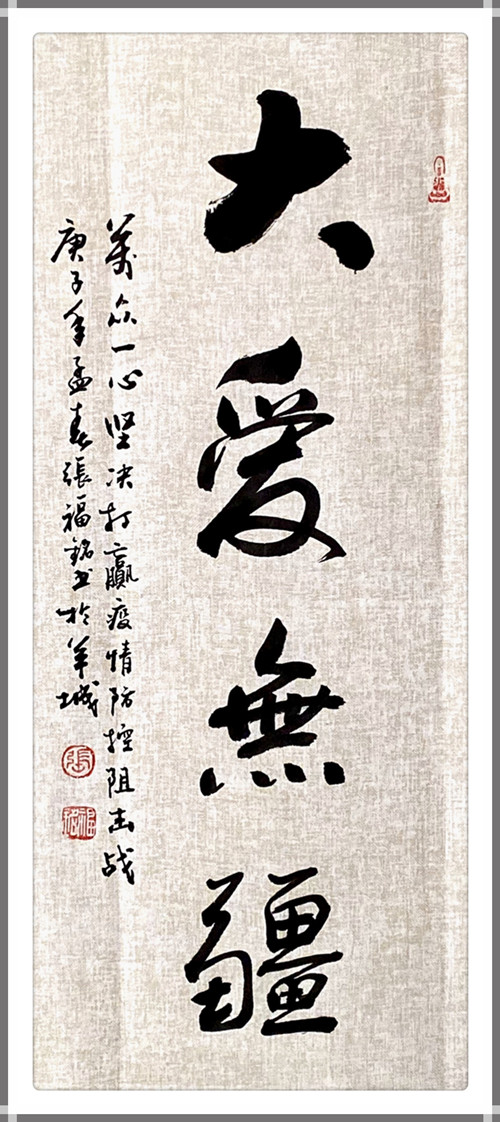 大爱無疆
萬众一心坚决打赢疫情防控阻击战
庚子年孟春張福銘书於羊城